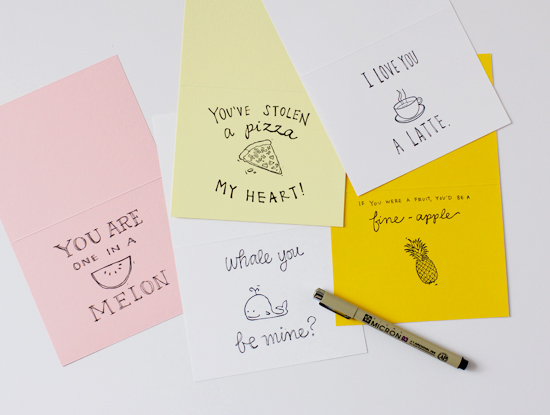 YOU'VE STOLEN
a pizza
MY HEART!
I LOVE YOU
A LATTE.
YOU ARE
ONE IN A
MELON
whale you
be mine?
IF YOU WERE A FRUIT, YOU'D BE A
fine-apple
MICRON